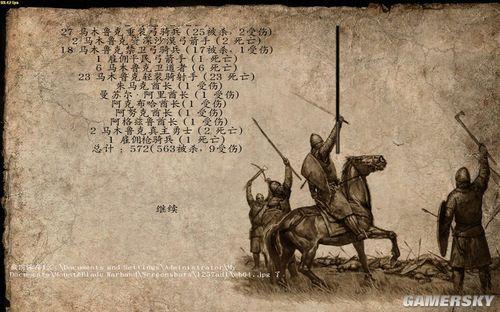 27 马木鲁克重装弓骑兵(25被杀,2受伤)
2 马木鲁克资深沙漠弓箭手(2 死亡)
18 马木鲁克禁卫弓骑兵(17被杀,1受伤)
1 雇佣平民弓箭手(1 死亡)
6 马木鲁克卫道者(6 死亡)
23 马木鲁克轻装骑射手(23 死亡)
朱马克酋长(1 受伤)
曼苏尔·阿里酋长(1 受伤)
阿克布哈酋长(1 受伤)
阿努克酋长(1 受伤)
阿格兹鲁酋长(1 受伤)
2 马木鲁克真主勇士(2 死亡)
1 雇佣枪骑兵(1 死亡)
总计:572(563被杀,9受伤)
继续
C:\Documents and Settings\Administrator\My
Documents\Mount&Blade Warband\Screenshots\1257ad1\mb04.jpg 了
GAMERSKY